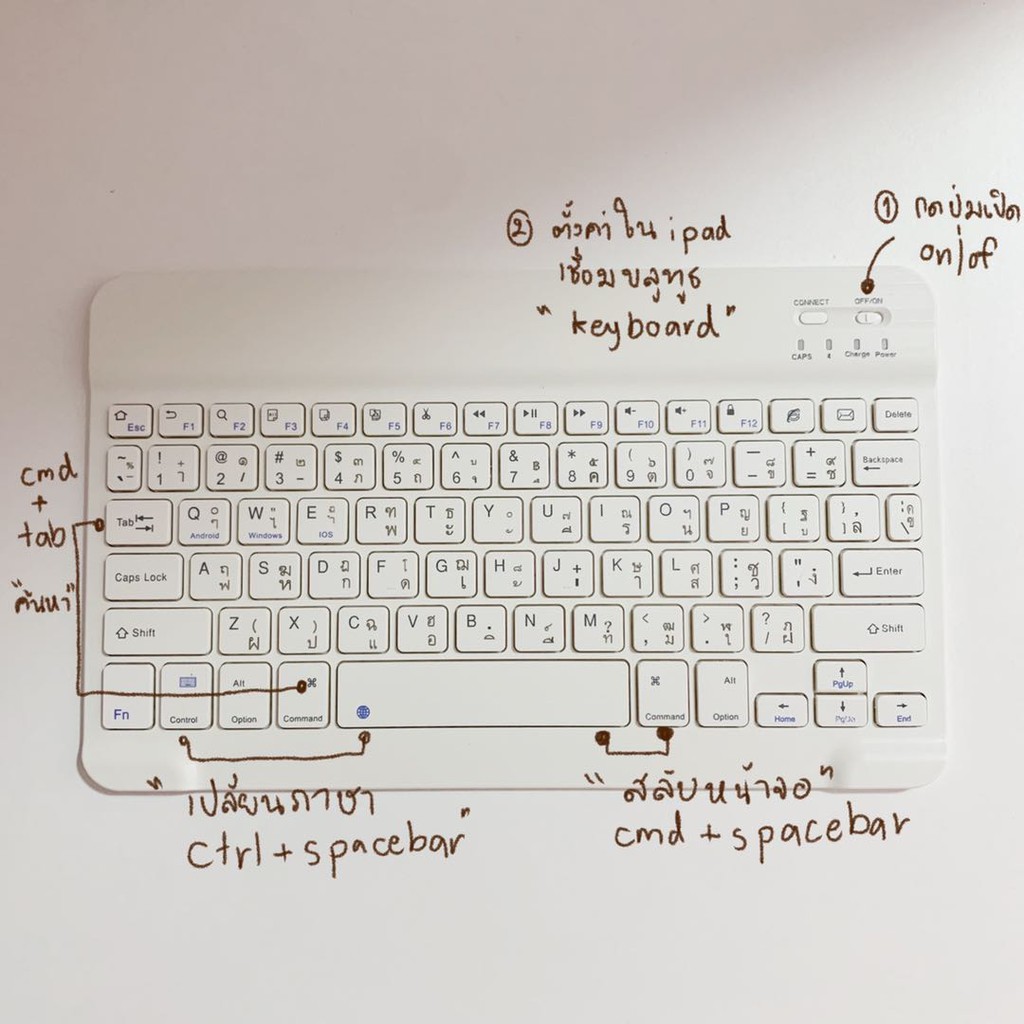 ① กดปุ่มเปิด
on/of
② ตั้งค่าใน ipad
เชื่อมบลูทูธ
"keyboard"
CONNECT OFF/ON
CAPS Charge Power
Esc F1 F2 F3 F4 F5 F6 F7 F8 F9 F10 F11 F12 Delete
~ % ` - ! + 1 ๅ @ ๑ 2 / # ๒ 3 - $ ๓ 4 ภ % ๔ 5 ถ ^ ู 6 ุ & ฿ 7 ึ * ๕ 8 ค ( ๖ 9 ต ) ๗ 0 จ _ ๘ - ข + ๙ = ช Backspace
cmd
+
tab
"ค้นหา"
Tab Q ๐ ๆ Android W " ไ Windows E ฎ ำ IOS R ฑ พ T ธ ะ Y ํ ั U ๊ ี I ณ ร O ฯ น P ญ ย { ฐ [ บ } , ] ล | ฅ \ ฃ
Caps Lock A ฤ ฟ S ฆ ห D ฏ ก F โ ด G ฌ เ H ็ ้ J ๋ ่ K ษ า L ศ ส : ซ ; ว " . ' ง Enter
Shift Z ( ผ X ) ป C ฉ แ V ฮ อ B ฺ ิ N ์ ื M ? ท < ฒ , ม > ฬ . ใ ? ฦ / ฝ Shift
Fn Control Alt Option ⌘ Command ⌘ Command Alt Option Home ↑ PgUp ↓ PgDn End
"เปลี่ยนภาษา"
ctrl + spacebar
"สลับหน้าจอ"
cmd + spacebar